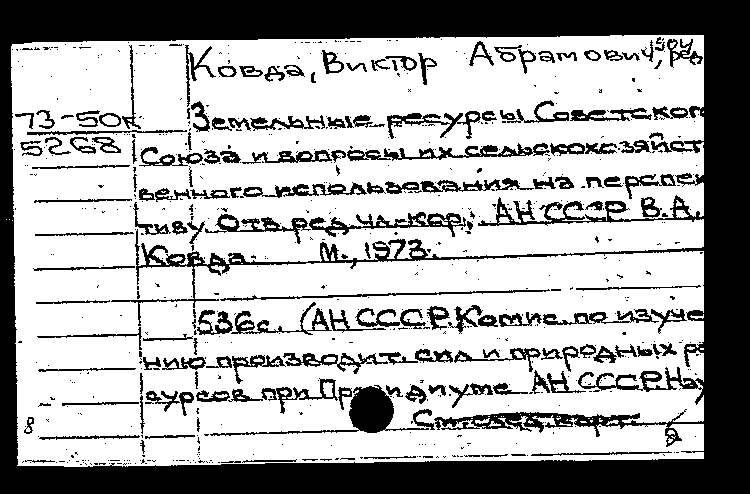 Ковда, Виктор Абрамович, ред
73-50к
5268
Земельные ресурсы Советског
Союза и вопросы их сельскохозяйст
венного использования на перспек
тиву. Отв. ред. чл.-кор. АН СССР В.А.
Ковда. М., 1973.
536с. (АН СССР. Комис. по изуче
нию производит. сил и природных ре
сурсов при Президиуме АН СССР. Нау
См. след. карт.
8
2